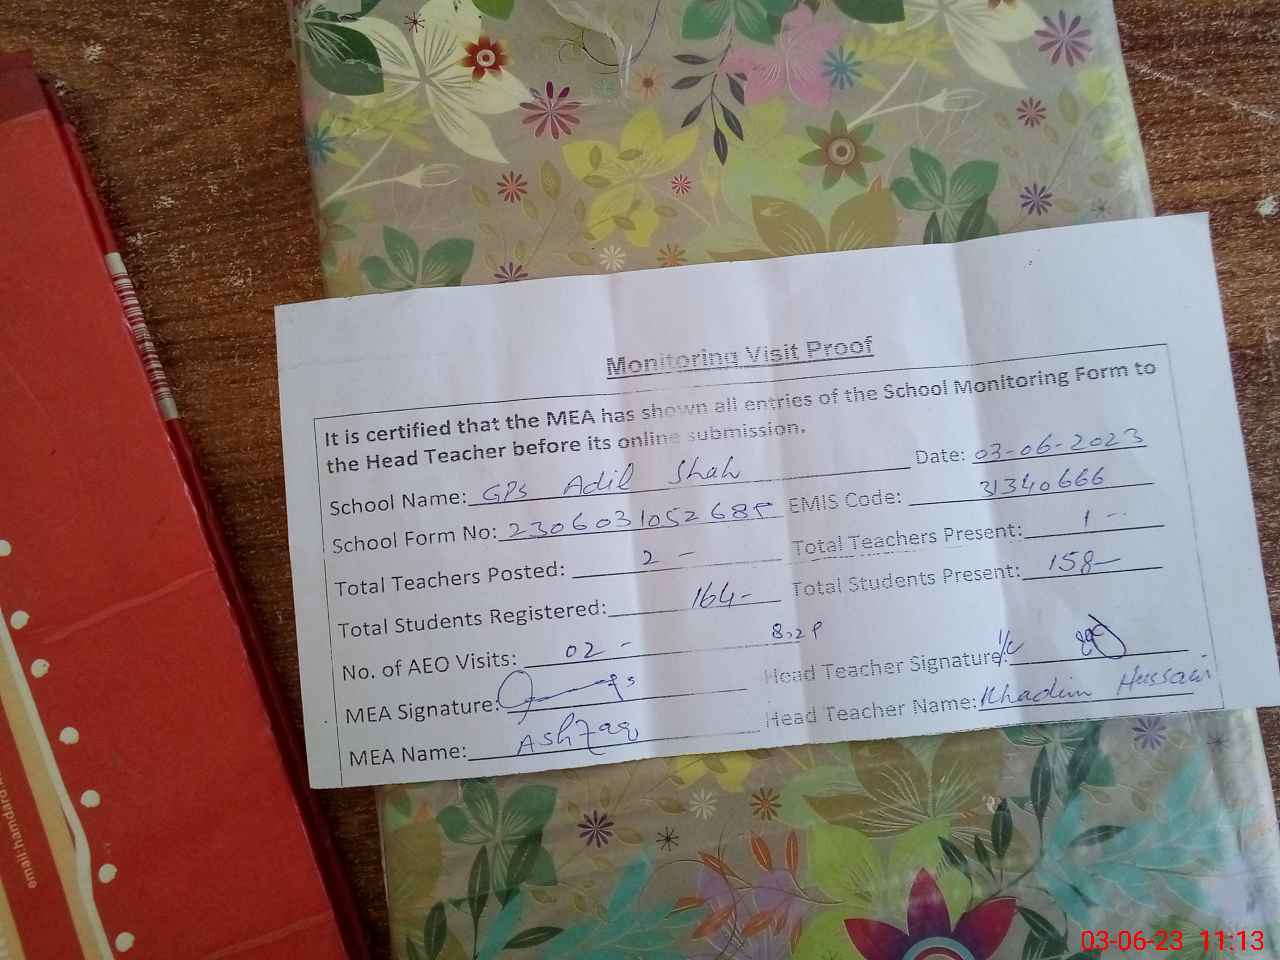 Monitoring Visit Proof
It is certified that the MEA has shown all entries of the School Monitoring Form to
the Head Teacher before its online submission.
School Name: GPS Adil Shah Date: 03-06-2023
School Form No: 230603105268 EMIS Code: 31340666
Total Teachers Posted: 2 - Total Teachers Present: 1 -
Total Students Registered: 164- Total Students Present: 158-
No. of AEO Visits: 02 -
MEA Signature: Head Teacher Signature:
MEA Name: Ashfaq Head Teacher Name: Khadim Hussain
03-06-23 11:13